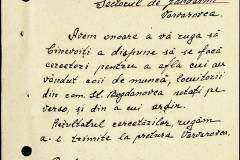 Sectorul de Jandarmi
Varvarovca
Avem onoare a vă ruga să
binevoiți a dispune să se facă
cercetări pentru a afla cui au
vândut boii de muncă, locuitorii
din com. St. Bogdanovca notați pe
verso, și din a cui ordin.
Rezultatul cercetărilor rugăm
a-l trimite la pretura Varvarovca.